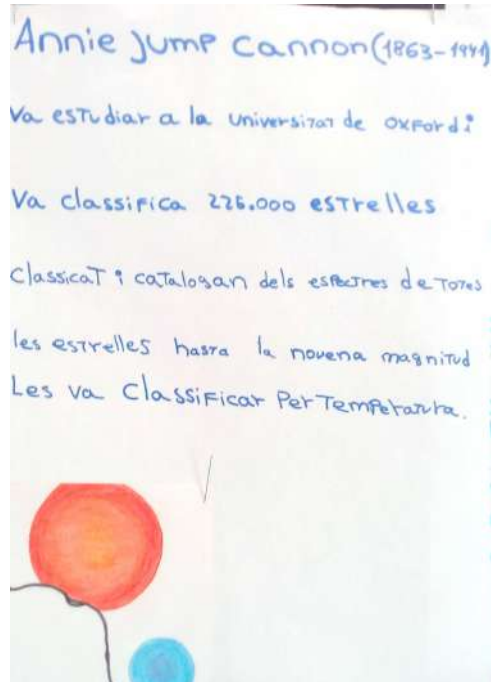 Annie Jump Cannon (1863-1941)
Va estudiar a la universitat de oxford i
Va classifica 225.000 estrelles
classicat i catalogan dels espectres de totes
les estrelles hasta la novena magnitud
Les va classificar per temperatura.